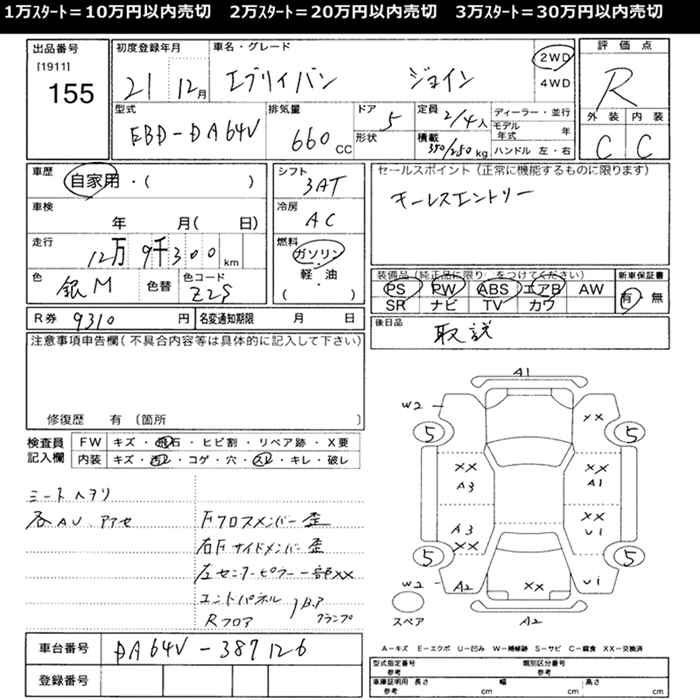 1万ｽﾀｰﾄ＝10万円以内売切　2万ｽﾀｰﾄ＝20万円以内売切　3万ｽﾀｰﾄ＝30万円以内売切
出品番号
[1911]
155
初度登録年月
21 12月
車名・グレード
エブリィバン ジョイン
2WD
4WD
評価点
R
外装 内装
C C
型式
EBD-DA64V
排気量
660 CC
ドア 5
形状
定員 2/4人
積載 350/250 kg
ディーラー・並行
モデル年式 年
ハンドル 左・右
車歴
自家用・( )
車検
年 月( 日)
走行
12万9千300 km
色 銀M 色替
色コード
Z2S
シフト
3AT
冷房
AC
燃料
ガソリン
軽・油
( )
セールスポイント (正常に機能するものに限ります)
キーレスエントリー
装備品 (純正品に限り をつけてください)
PS PW ABS エアB AW
SR ナビ TV カワ
新車保証書
有・無
R券 9310 円 名変通知期限 月 日
後日品
取説
注意事項申告欄(不具合内容等は具体的に記入して下さい)
修復歴 有 (箇所 )
検査員
記入欄
FW キズ・飛石・ヒビ割・リペア跡・X要
内装 キズ・汚レ・コゲ・穴・スレ・キレ・破レ
シートヘタリ
各AU.アセ
Fクロスメンバー歪
右Fサイドメンバー歪
左センターピラー一部XX
エンドパネル
Rフロア
クランプ
A1
W2
XX
5 5
XX XX
A3 A1
XX
A3 U1
XX
5 5
W2 A2 XX U1
A2
スペア
車台番号 DA64V-387126
登録番号
A－キズ E－エクボ U－凹み W－補修跡 S－サビ C－腐食 XX－交換済
型式指定番号
参考
類別区分番号
参考
車庫証明用 長さ
参考 cm
幅
cm
高さ
cm